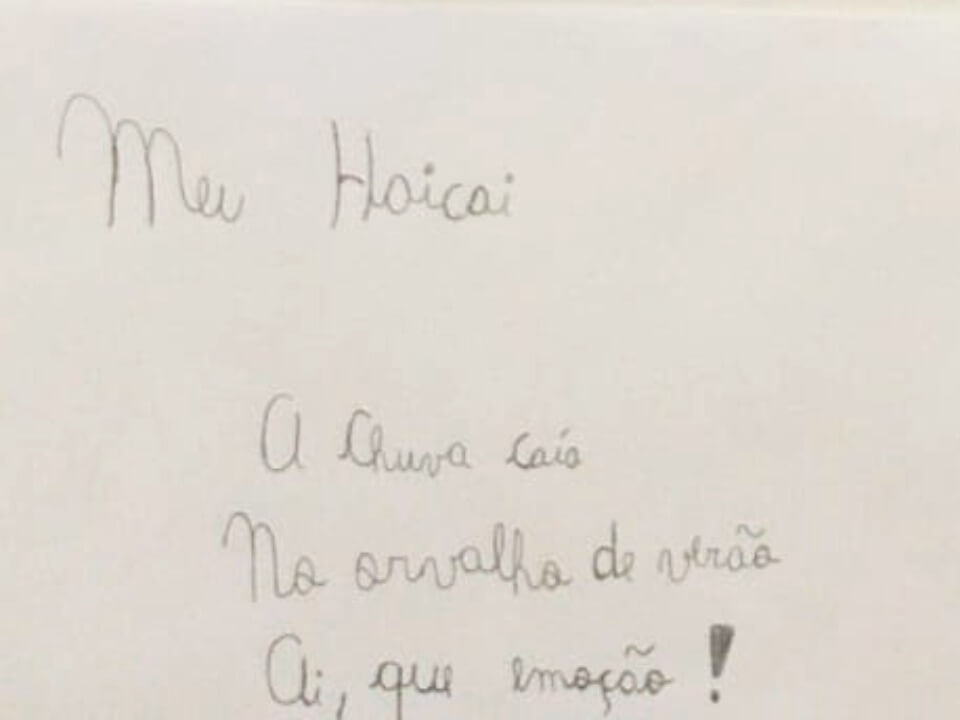 Meu Haicai
A Chuva caía
No orvalho de verão
Ai, que emoção!